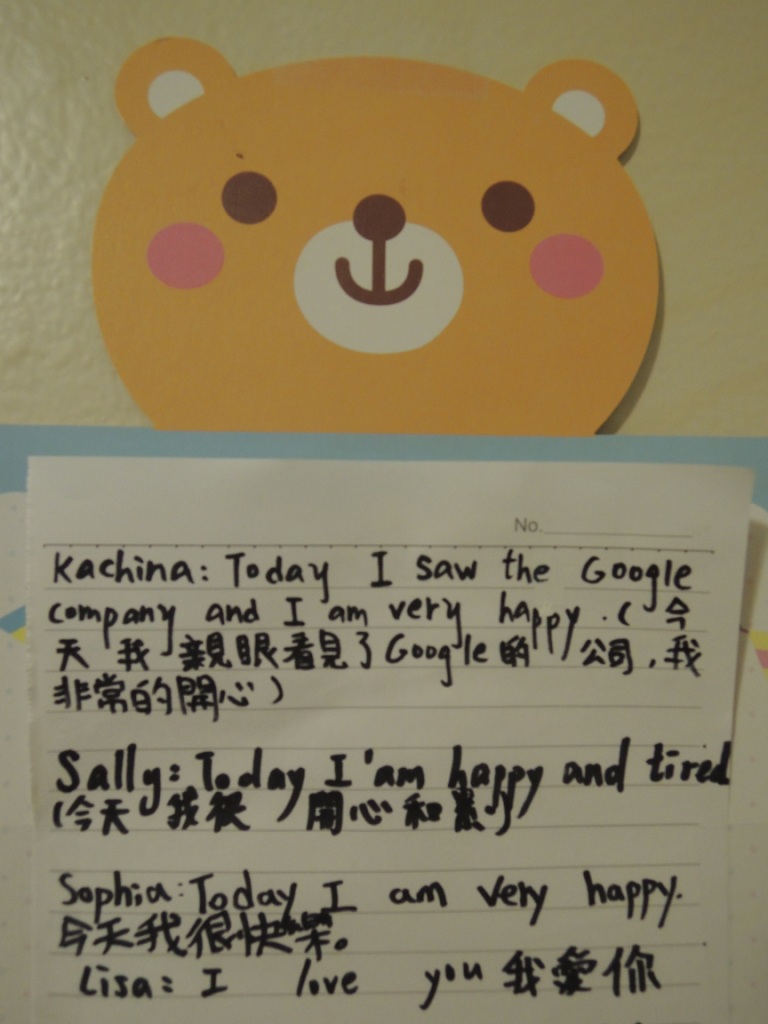 No.
Kachina: Today I saw the Google
company and I am very happy. (今
天 我 親眼看見了Google的 公司,我
非常的開心)
Sally: Today I'am happy and tired
(今天 我很 開心和累)
Sophia: Today I am very happy.
今天我很快樂。
Lisa: I love you 我愛你